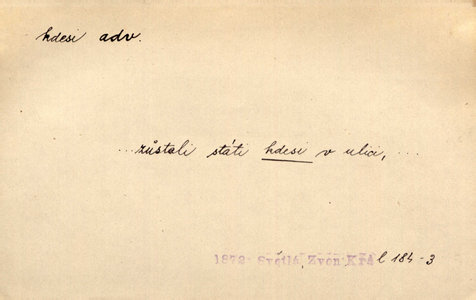 kdesi adv.
...zůstali státi kdesi v ulici,...
1872 Světlá, Zvon. Král 184-3